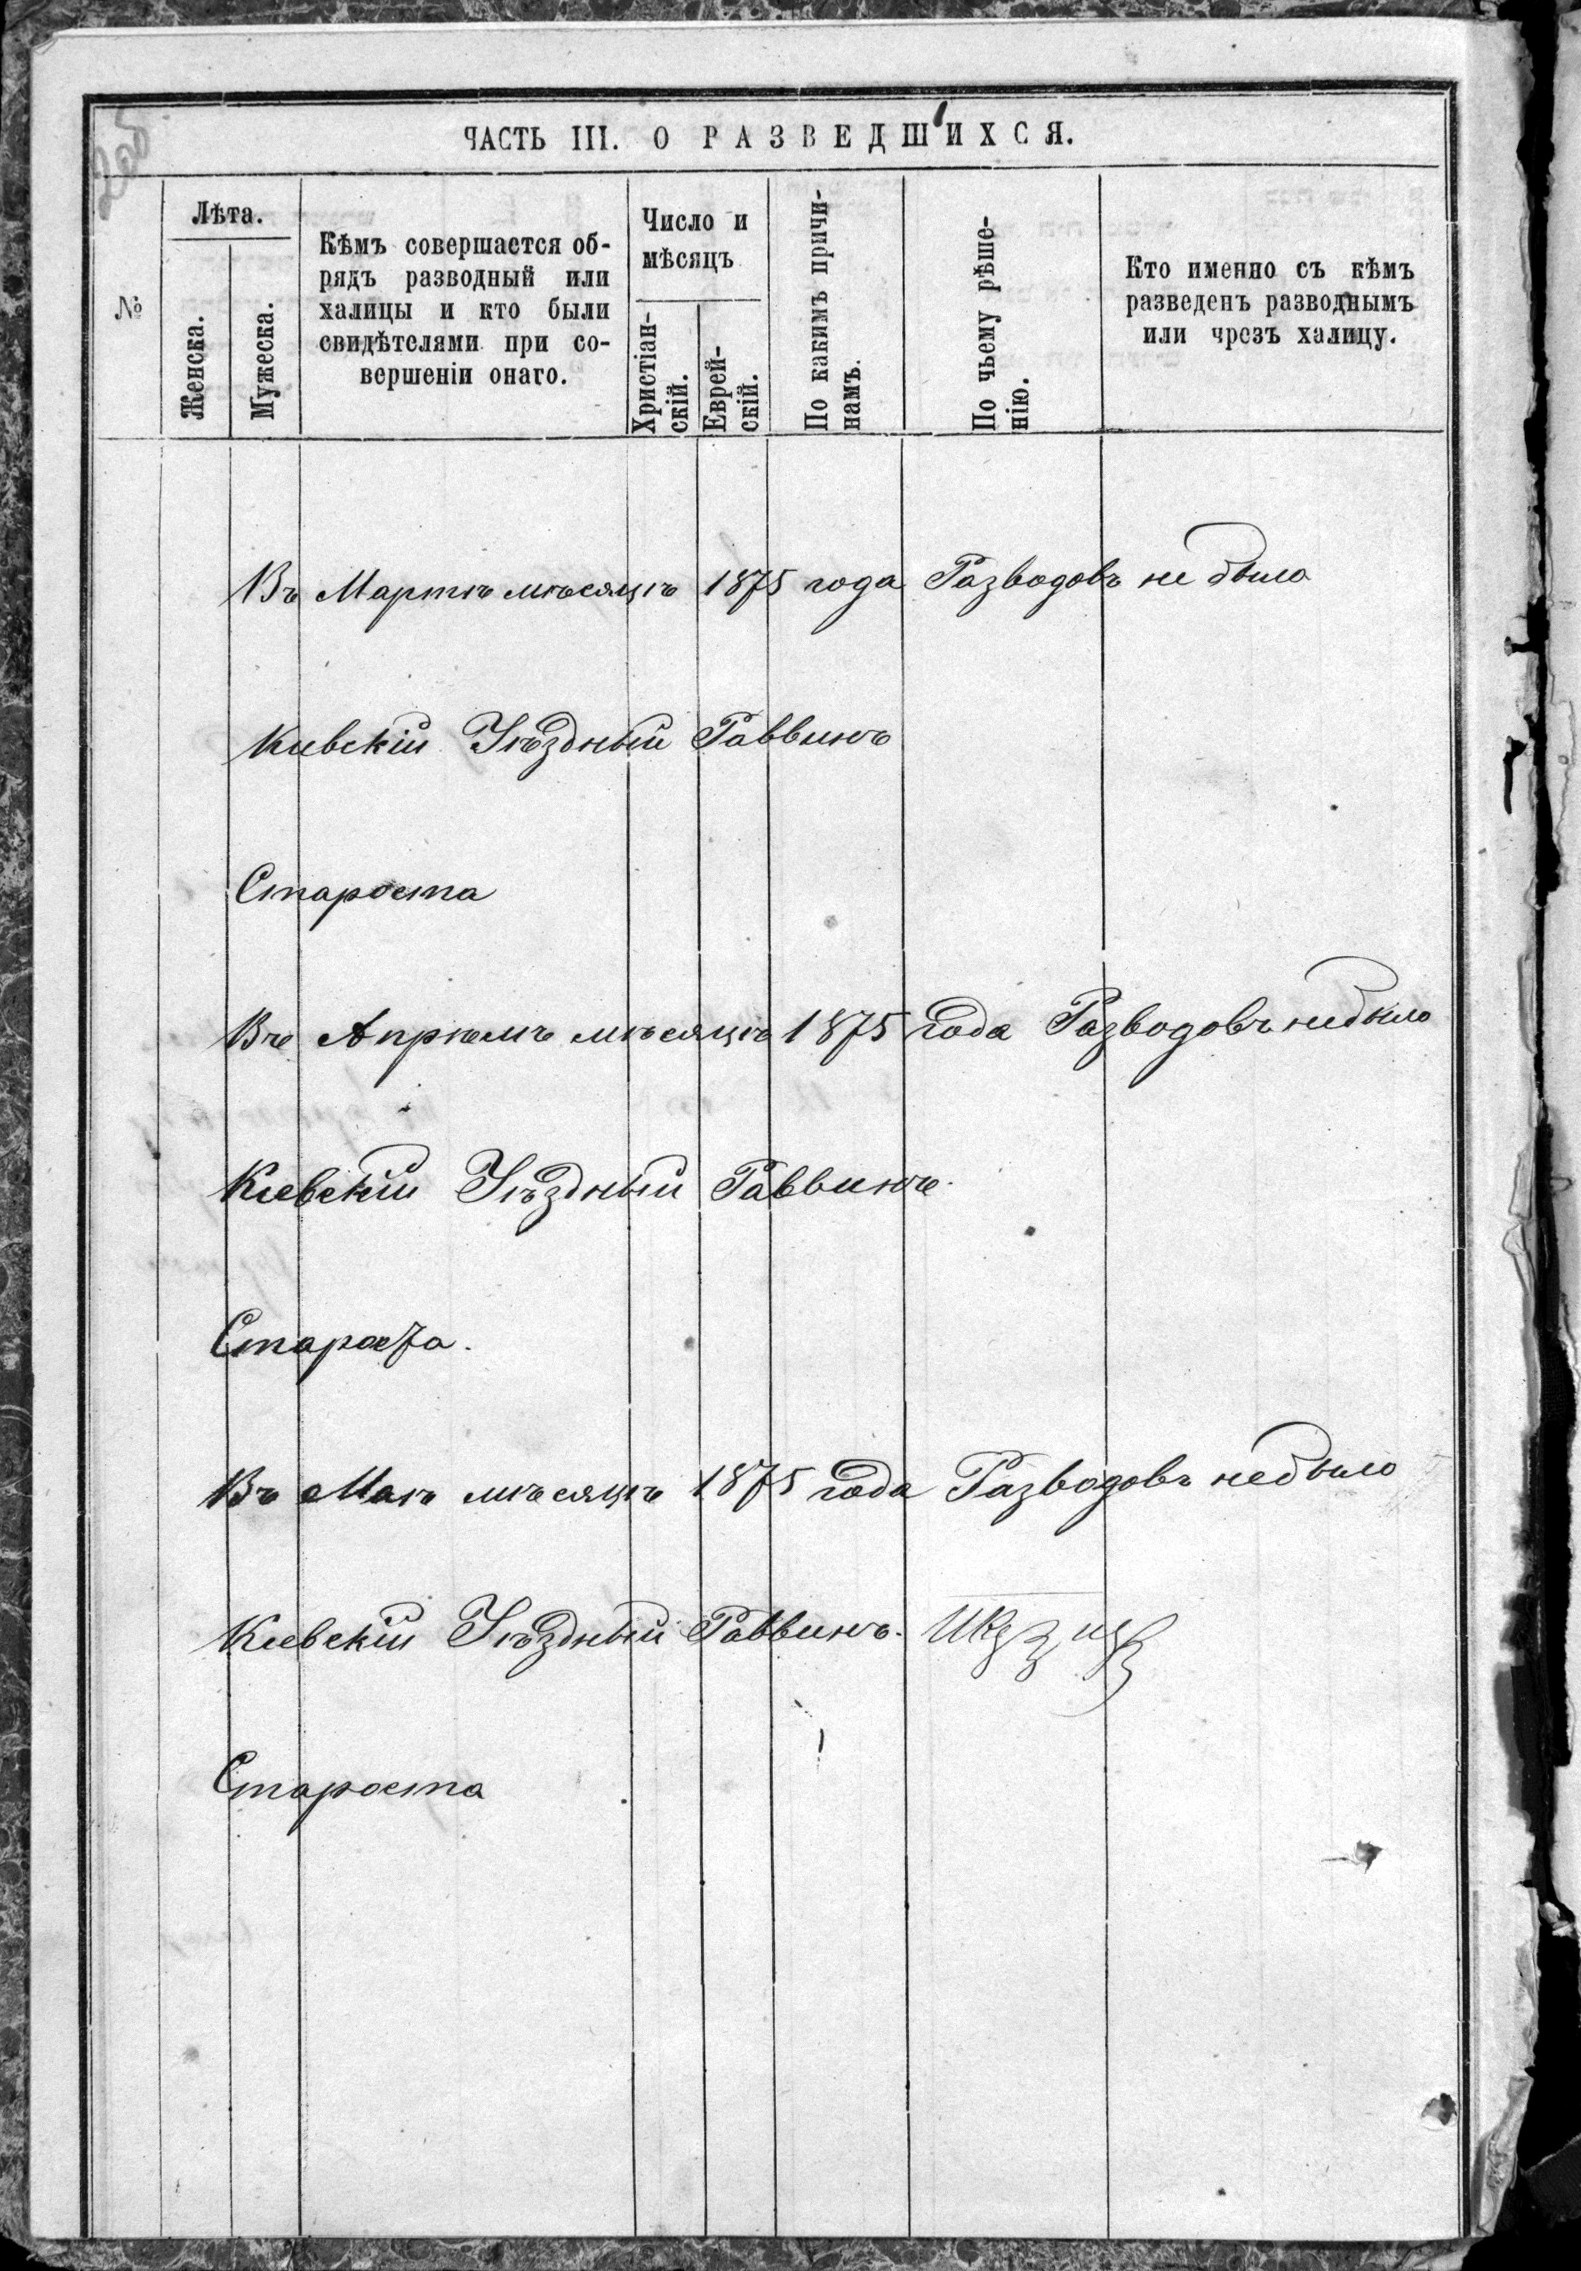 ЧАСТЬ III. О РАЗВЕДШИХСЯ.
№
Лѣта.
Женска.
Мужеска.
Кѣмъ совершается об-
рядъ разводный или
халицы и кто были
свидѣтелями при со-
вершеніи онаго.
Число и
мѣсяцъ
Христіан-
скій.
Еврей-
скій.
По какимъ причи-
намъ.
По чьему рѣше-
нію.
Кто именно съ кѣмъ
разведенъ разводнымъ
или чрезъ халицу.
Въ Мартѣ мѣсяцѣ 1875 года Разводовъ не было
Кіевскій Уѣздный Раввинъ
Староста
Въ Апрѣлѣ мѣсяцѣ 1875 года Разводовъ не было
Кіевскій Уѣздный Раввинъ.
Староста.
Въ Маѣ мѣсяцѣ 1875 года Разводовъ не было
Кіевскій Уѣздный Раввинъ.
Староста